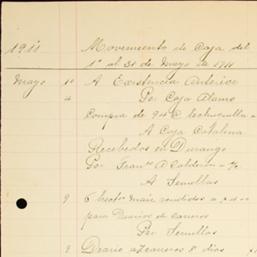 1911 Movimiento de Caja del
1º al 31 de Mayo de 1911
Mayo 1º A Existencia Anterior
4 Por Caja Alamo
Compra de 94 C lechuguilla a
A Caja Catalina
Recibidos en Durango
Por Franco A Calderon a
A Semillas
9 6 hects maiz vendidos a
para Diarios de carreros
Por Semillas
9 Diario a carreros 8 dias